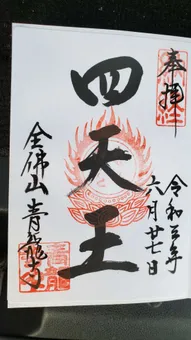 奉拝
令和元年
六月廿七日
四天王
全佛山 青龍寺
青龍